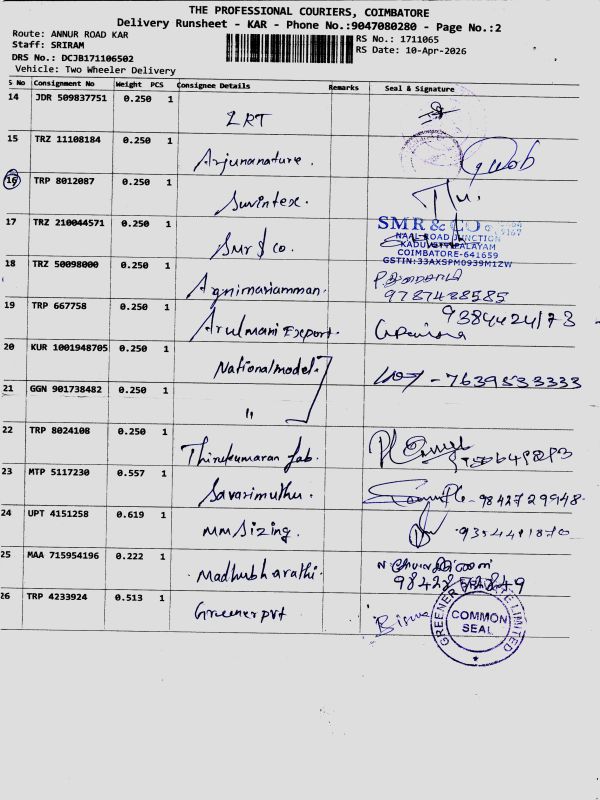 THE PROFESSIONAL COURIERS, COIMBATORE
Delivery Runsheet - KAR - Phone No.:9047080280 - Page No.:2
Route: ANNUR ROAD KAR
Staff: SRIRAM
DRS No.: DCJB171106502
Vehicle: Two Wheeler Delivery
RS No.: 1711065
RS Date: 10-Apr-2026
S No Consignment No Weight PCS Consignee Details Remarks Seal & Signature
14 JDR 509837751 0.250 1
ZRT
15 TRZ 11108184 0.250 1
Arjunanature.
16 TRP 8012087 0.250 1
Suvintex.
17 TRZ 210044571 0.250 1
Smr & co.
SMR & CO
NAAL ROAD JUNCTION
KADUVETTIPALAYAM
COIMBATORE-641659
GSTIN:33AXSPM0939M1ZW
18 TRZ 50098000 0.250 1
Agnimariamman.
9787428585
19 TRP 667758 0.250 1
Arulmani Export.
9384424173
20 KUR 1001948705 0.250 1
Nationalmodel.
- 7639533333
21 GGN 901738482 0.250 1
"
22 TRP 8024108 0.250 1
Thirukumaran fab.
23 MTP 5117230 0.557 1
Savarimuthu.
- 9842729948
24 UPT 4151258 0.619 1
mm sizing.
9354491870
25 MAA 715954196 0.222 1
Madhubharathi.
26 TRP 4233924 0.513 1
Greener pvt
Biswa
GREENER LIMITED
COMMON
SEAL